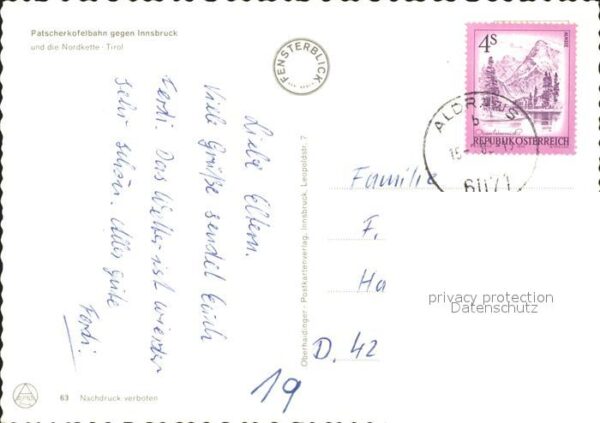 Patscherkofelbahn gegen Innsbruck
und die Nordkette · Tirol
FENSTERBLICK
4S
REPUBLIK ÖSTERREICH
ALDRANS
b
6071
Liebe Eltern.
Viele Grüße sendet Euch
Ferdi. Das Wetter ist wieder
sehr schön. Alles gute
Ferdi.
Oberhaidinger · Postkartenverlag, Innsbruck, Leopoldstr. 7
Familie
F.
Ha
D. 42
19
privacy protection
Datenschutz
63 Nachdruck verboten